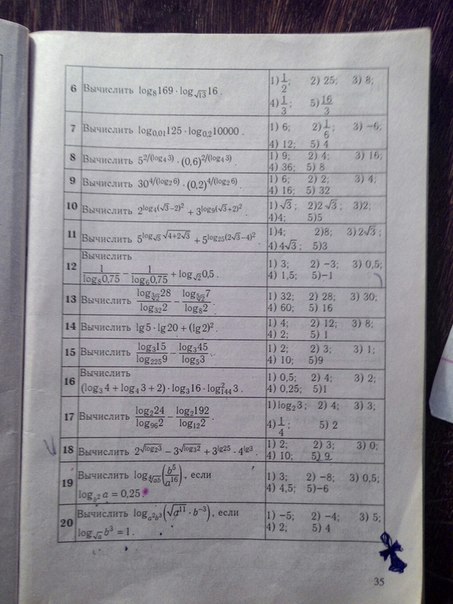 6 Вычислить log₈169 · log_{√13}16. 1) 1/2; 2) 25; 3) 8;
4) 1/3; 5) 16/3
7 Вычислить log₀,₀₁125 · log₀,₂10000. 1) 6; 2) 1/6; 3) −6;
4) 12; 5) 4
8 Вычислить 5^{2/(log₄3)} · (0,6)^{2/(log₄3)} 1) 9; 2) 4; 3) 16;
4) 36; 5) 8
9 Вычислить 30^{4/(log₂6)} · (0,2)^{4/(log₂6)}. 1) 6; 2) 2; 3) 4;
4) 16; 5) 32
10 Вычислить 2^{log₄(√3−2)²} + 3^{log₉(√3+2)²}. 1) √3; 2) 2√3; 3) 2;
4) 4; 5) 5
11 Вычислить 5^{log_{√5}√(4+2√3)} + 5^{log₂₅(2√3−4)²}. 1) 4; 2) 8; 3) 2√3;
4) 4√3; 5) 3
12 Вычислить
1/log₈0,75 − 1/log₆0,75 + log_{√2}0,5. 1) 3; 2) −3; 3) 0,5;
4) 1,5; 5) −1
13 Вычислить log_{∛2}28/log₃₂2 − log_{⁵√2}7/log₈2. 1) 32; 2) 28; 3) 30;
4) 60; 5) 16
14 Вычислить lg5 · lg20 + (lg2)². 1) 4; 2) 12; 3) 8;
4) 2; 5) 1
15 Вычислить log₃15/log₂₂₅9 − log₃45/log₅3. 1) 2; 2) 3; 3) 1;
4) 10; 5) 9
16 Вычислить
(log₃4 + log₄3 + 2) · log₃16 · log²₁₄₄3. 1) 0,5; 2) 4; 3) 2;
4) 0,25; 5) 1
17 Вычислить log₂24/log₉₆2 − log₂192/log₁₂2. 1) log₂3; 2) 4; 3) 3;
4) 1/4; 5) 2
18 Вычислить 2^{√log₂3} − 3^{√log₃2} + 3^{lg25} · 4^{lg3}. 1) 2; 2) 3; 3) 0;
4) 10; 5) 9
19 Вычислить log_{⁴√a³}(b⁵/a¹⁶), если
log_{b²}a = 0,25 1) 3; 2) −8; 3) 0,5;
4) 4,5; 5) −6
20 Вычислить log_{a²b³}(√a¹¹ · b⁻³), если
log_{√a}b³ = 1. 1) −5; 2) −4; 3) 5;
4) 2; 5) 4
35